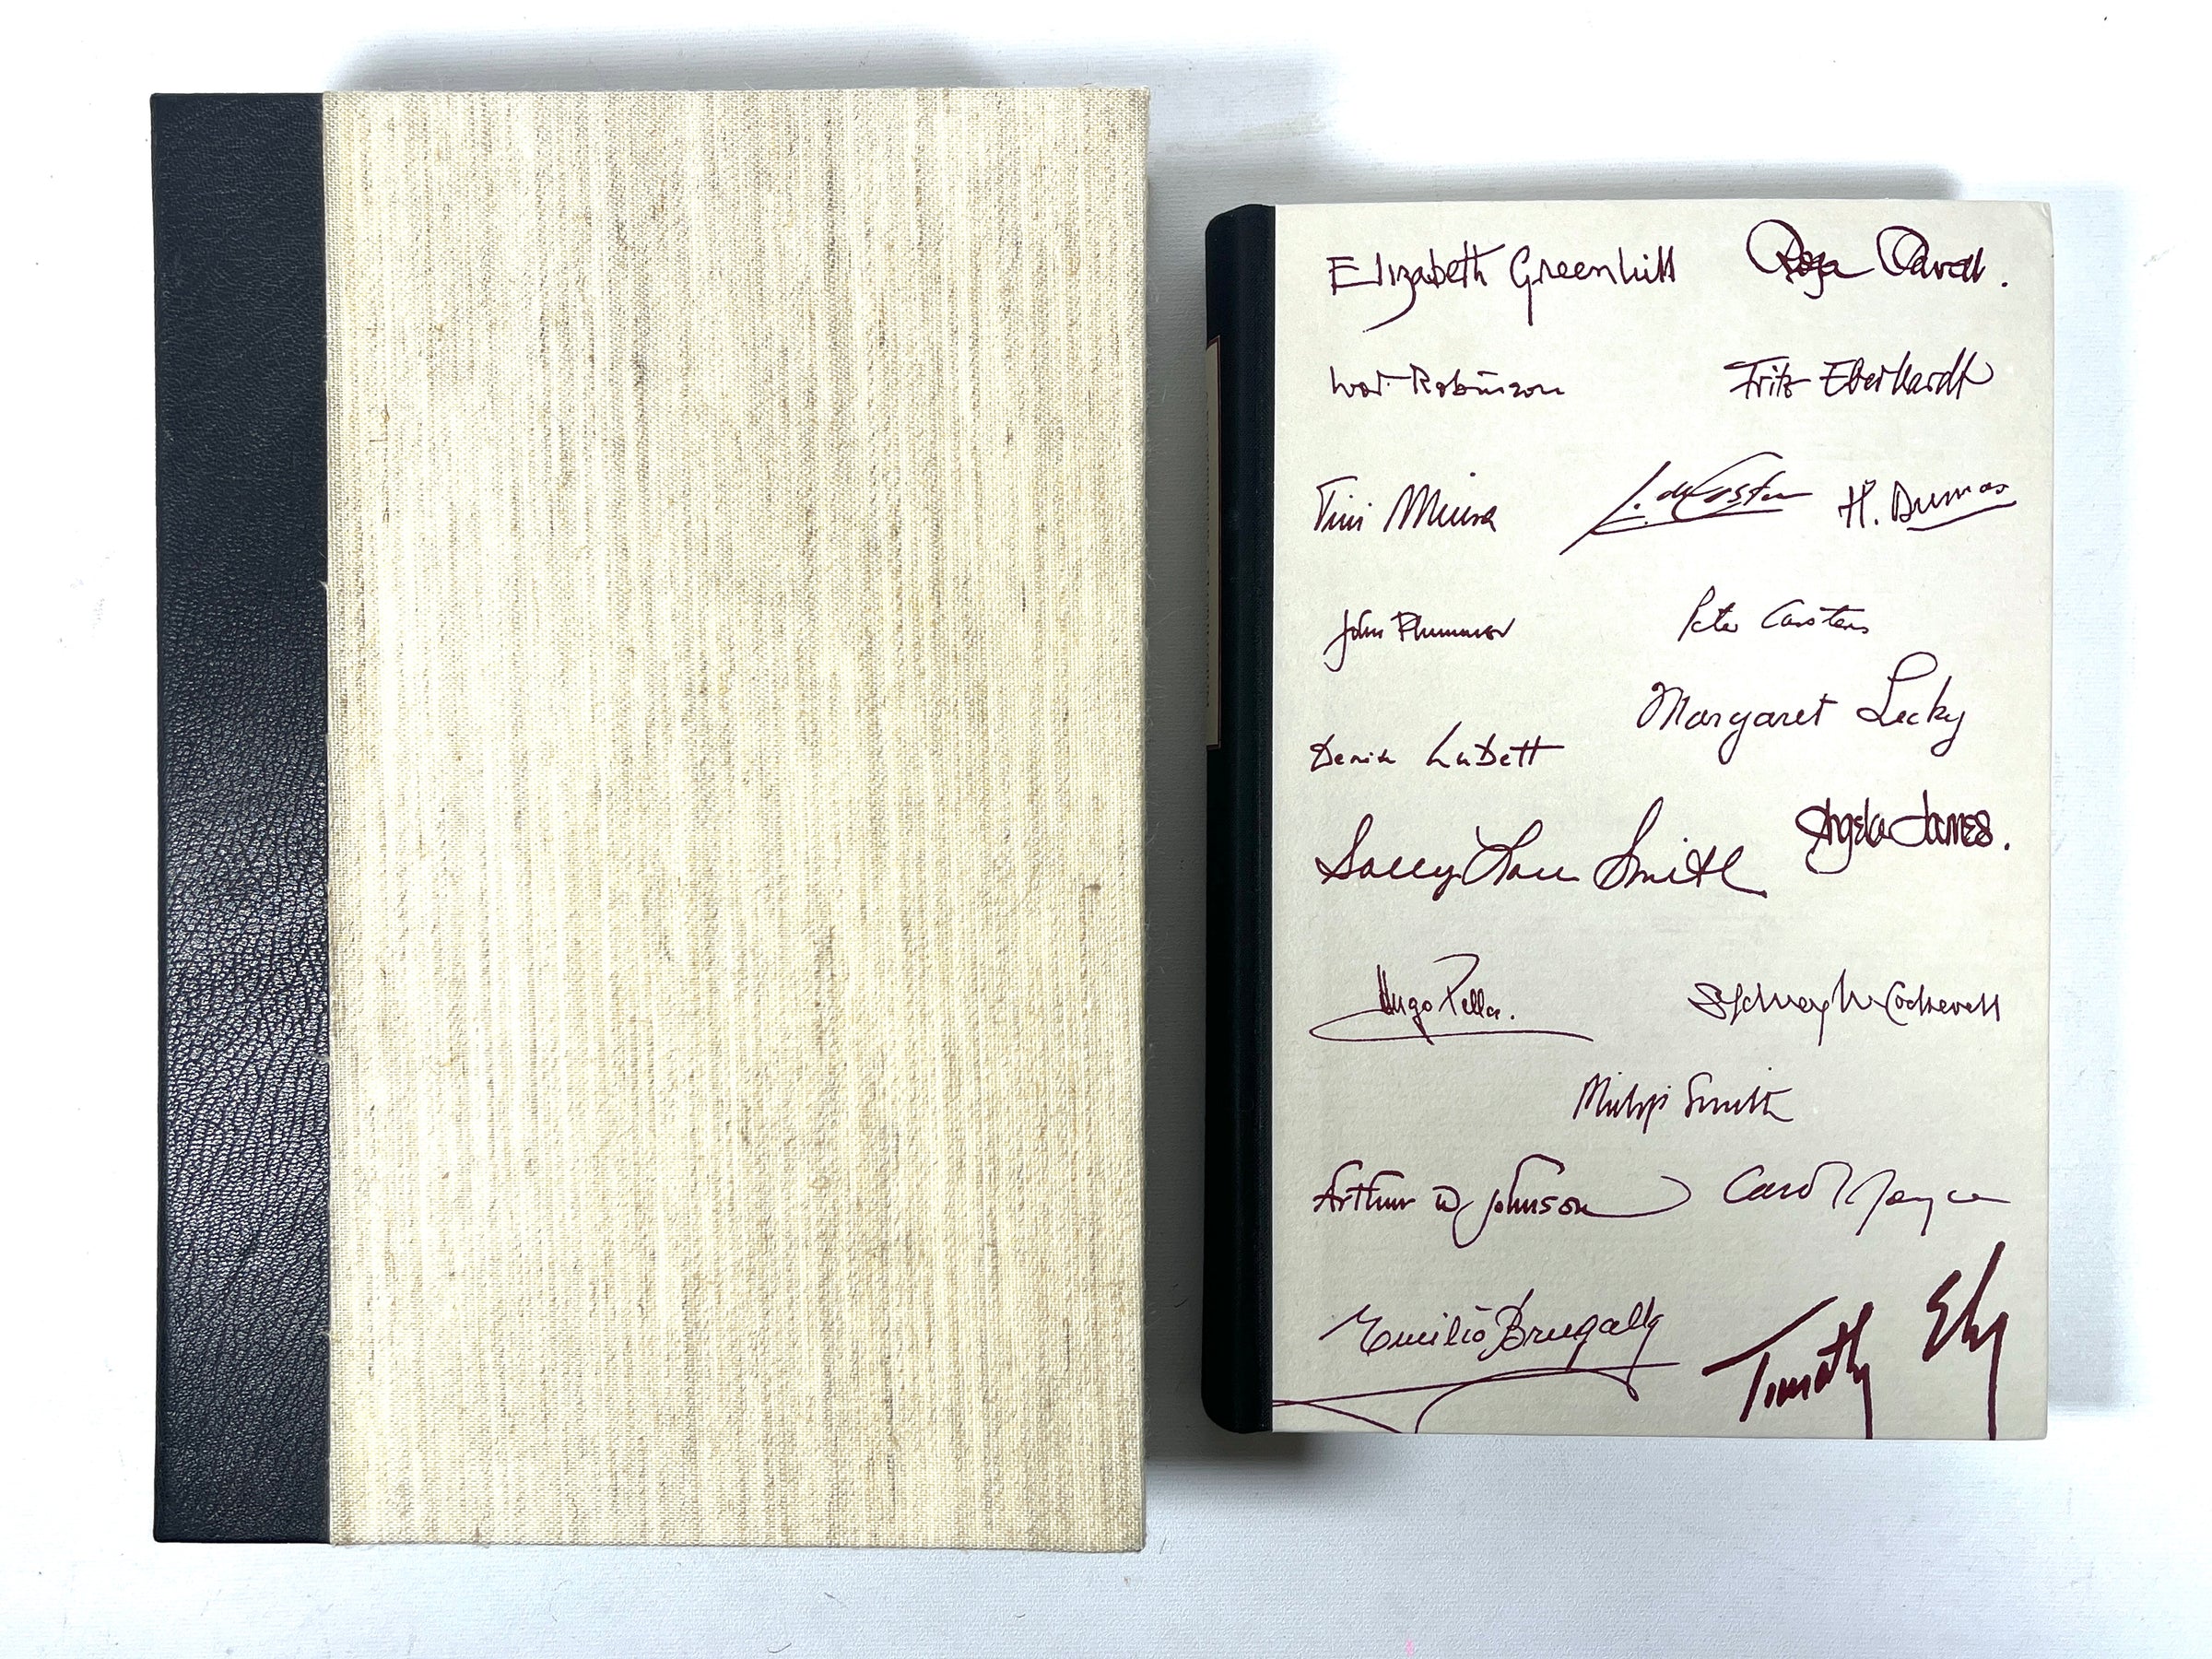 Elizabeth Greenhill
Ivor Robinson Fritz Eberhardt
Tini Miura H. Dumas
John Plummer Peter Carstens
Margaret Lecky
Denise Lubett
Angela James.
Sally Lou Smith
Hugo Peller. Sydney M Cockerell
Philip Smith
Arthur W Johnson Carol Joyce
Emilio Brugalla Timothy Ely